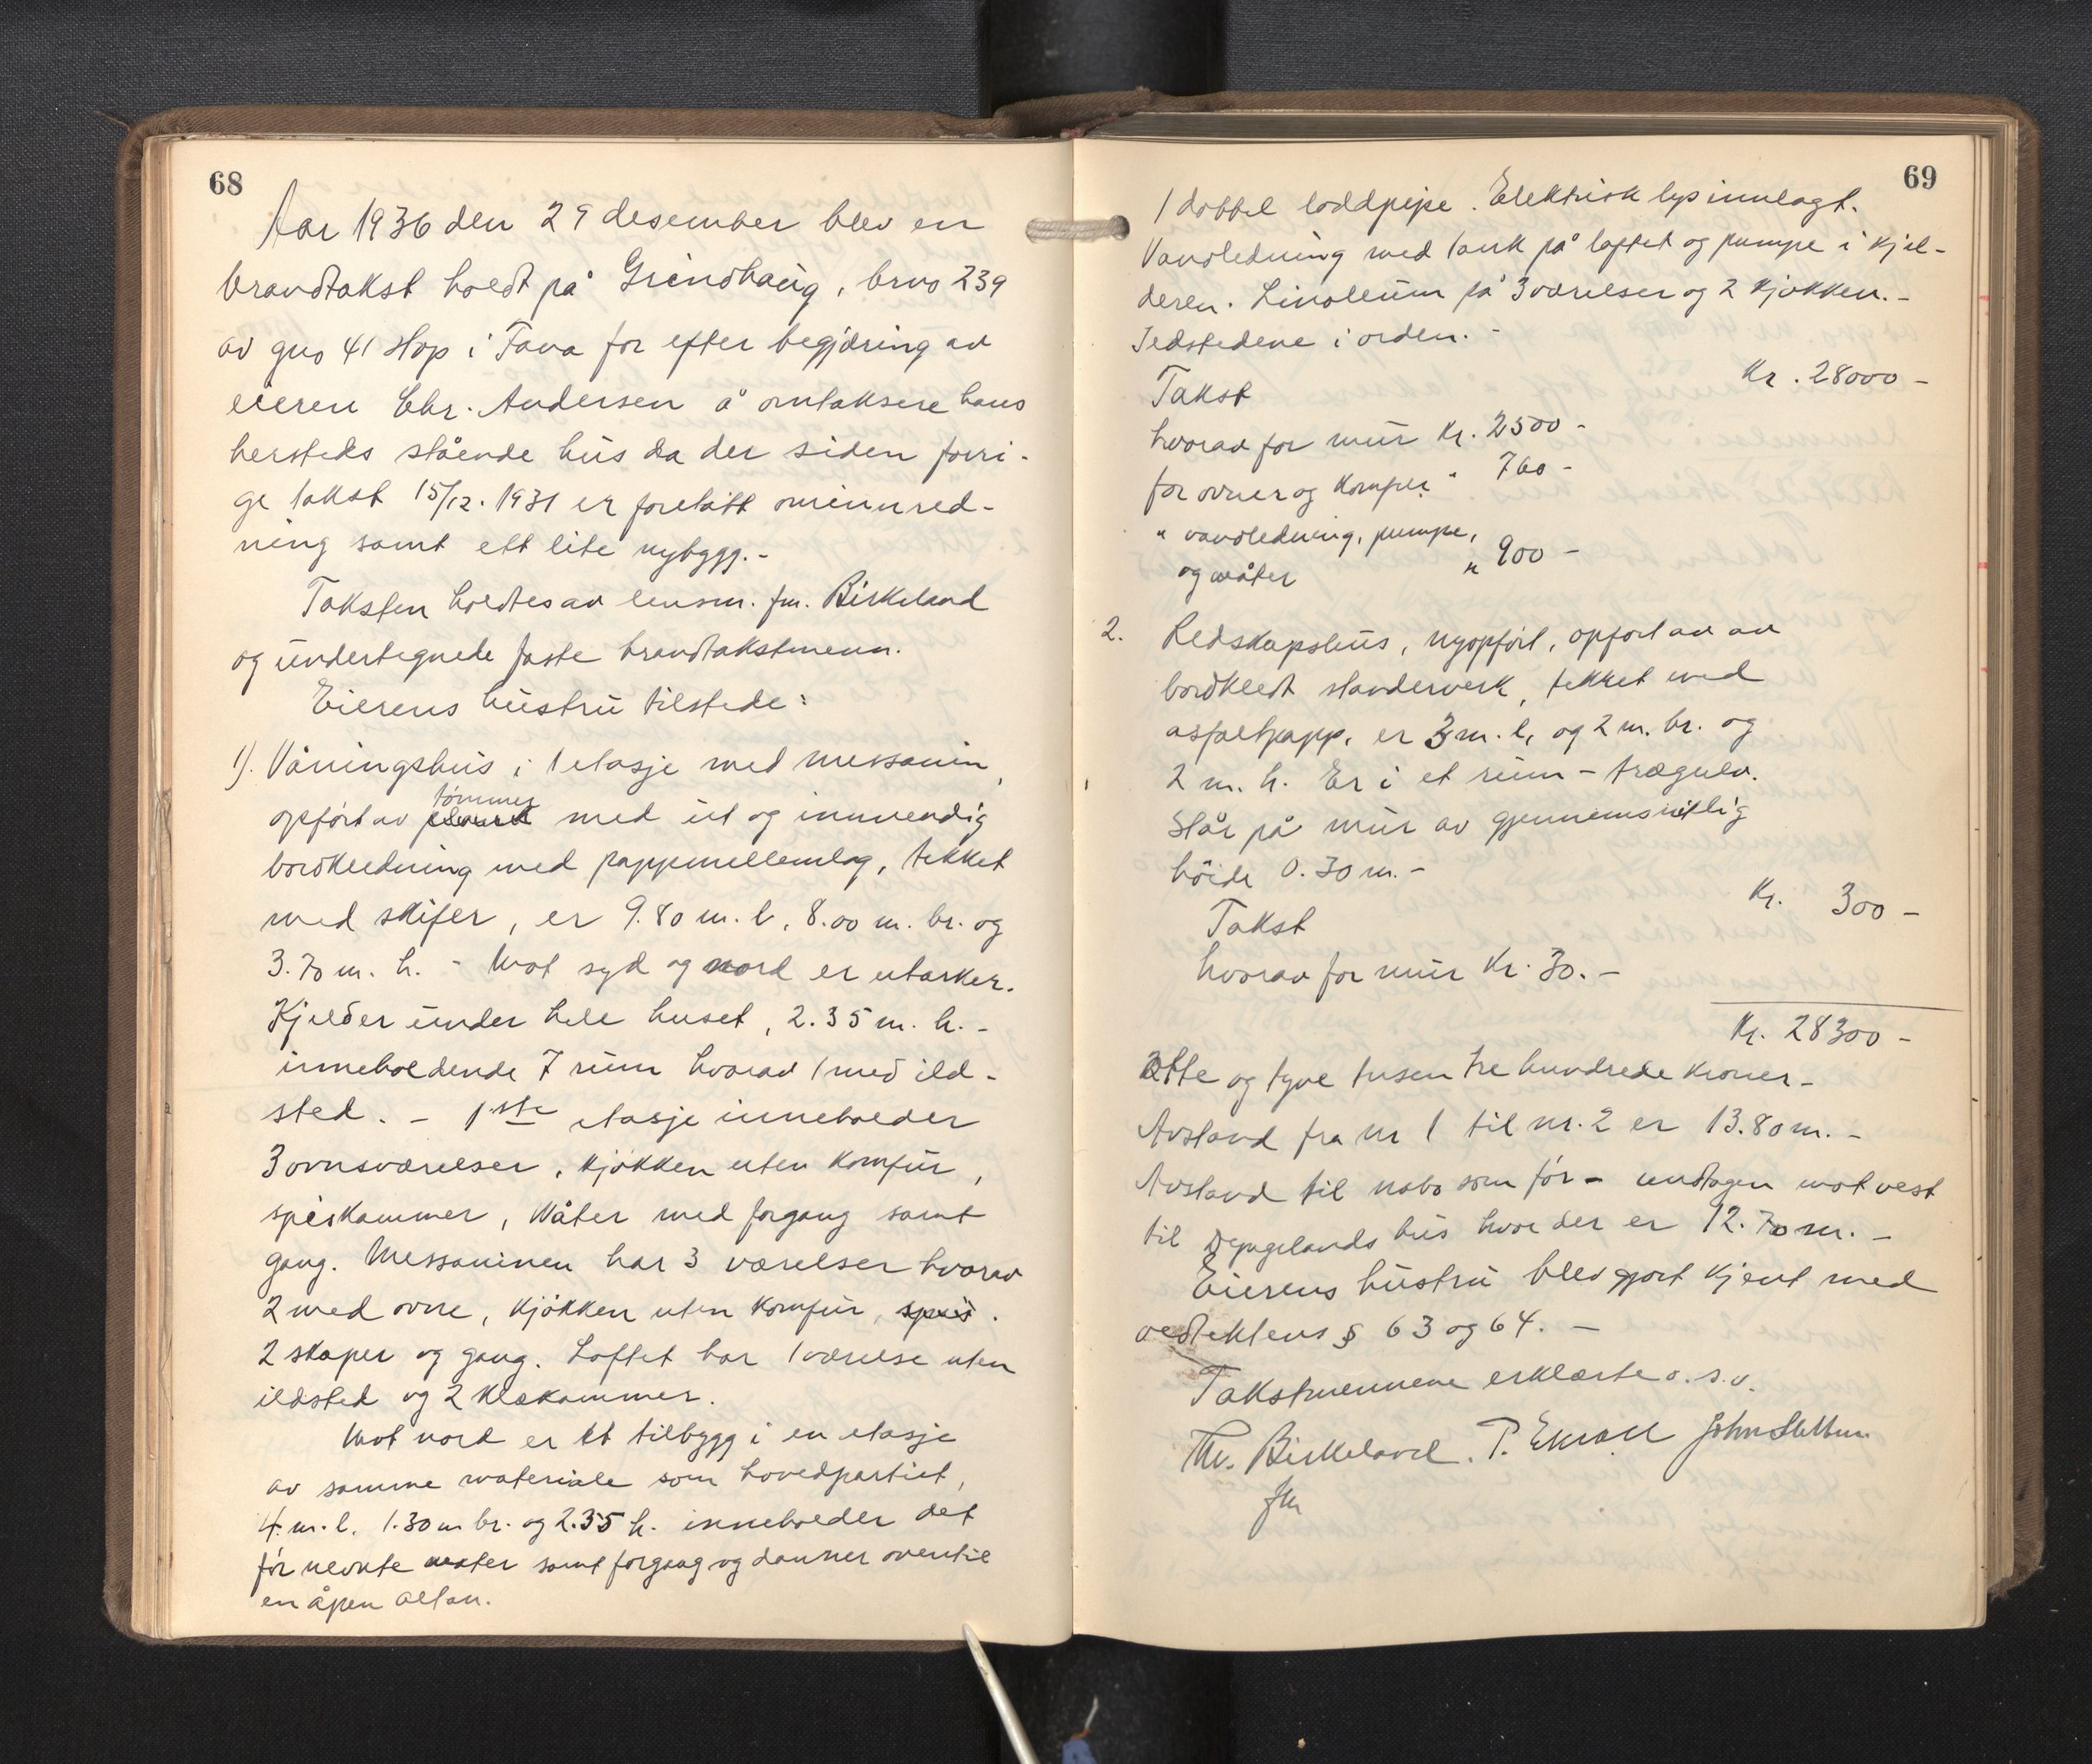 68
Aar 1936 den 29 desember blev en
brandtakst holdt på Grindhaug, brno 239
av gno 41 Hop i Fana for efter begjæring av
eieren Chr. Andersen å omtaksere hans
hersteds stående hus da der siden forri-
ge takst 15/12. 1931 er foretatt ominnred-
ning samt ett lite nybygg.-
Taksten holdtes av lensm. fm. Birkeland
og undertegnede faste brandtakstmenn.
Eierens hustru tilstede:
1). Våningshus i 1 etasje med messanin,
tømmer
opført av plank med ut og innvendig
bordkledning med pappmellemlag, tekket
med skifer, er 9.80 m. l. 8.00 m. br. og
3.70 m. h. - Mot syd og nord er utarker.
Kjelder under hele huset, 2.35 m. h. -
inneholdende 7 rum hvorav 1 med ild-
sted. - 1ste etasje inneholder
3 ovnsværelser, kjøkken uten komfur,
spiskammer, Wåter med forgang samt
gang. Messaninen har 3 værelser hvorav
2 med ovne, kjøkken uten komfur, spis.
2 skaper og gang. Loftet har 1 værelse uten
ildsted og 2 klækammer.
Mot nord er et tilbygg i en etasje
av samme materiale som hovedpartiet,
4. m. l. 1.30 m br. og 2.35 h. inneholder det
før nevnte water samt forgang og danner oventil
en åpen altan.
69
1 dobbel loddpipe. Elektrisk lys innlagt.
Vandledning med tank på loftet og pumpe i kjel-
deren. Linoleum på 3 værelser og 2 kjøkken. -
Ildstedene i orden. -
Takst Kr. 28000 -
hvorav for mur Kr. 2500 -
for ovner og komfur " 760 -
" vandledning, pumpe,
og wåter " 900 -
2. Redskapshus, nyopført, opført av av
bordkledt standerverk, tekket med
asfaltpapp, er 3 m. l, og 2 m. br. og
2 m. h. Er i et rum - trægulv.
Står på mur av gjennemsnitlig
høide 0.30 m. -
Takst Kr. 300 -
hvorav for mur Kr. 30. -
Kr. 28300 -
Otte og tyve tusen tre hundrede kroner -
Avstand fra nr 1 til nr. 2 er 13.80 m. -
Avstand til nabo som før - undtagen mot vest
til Dyngelands hus hvor der er 12.70 m. -
Eierens hustru blev gjort kjent med
vedtektens § 63 og 64. -
Takstmennene erklærte o. s. v.
Thv. Birkeland. P. Ekroll John Slettem
fm